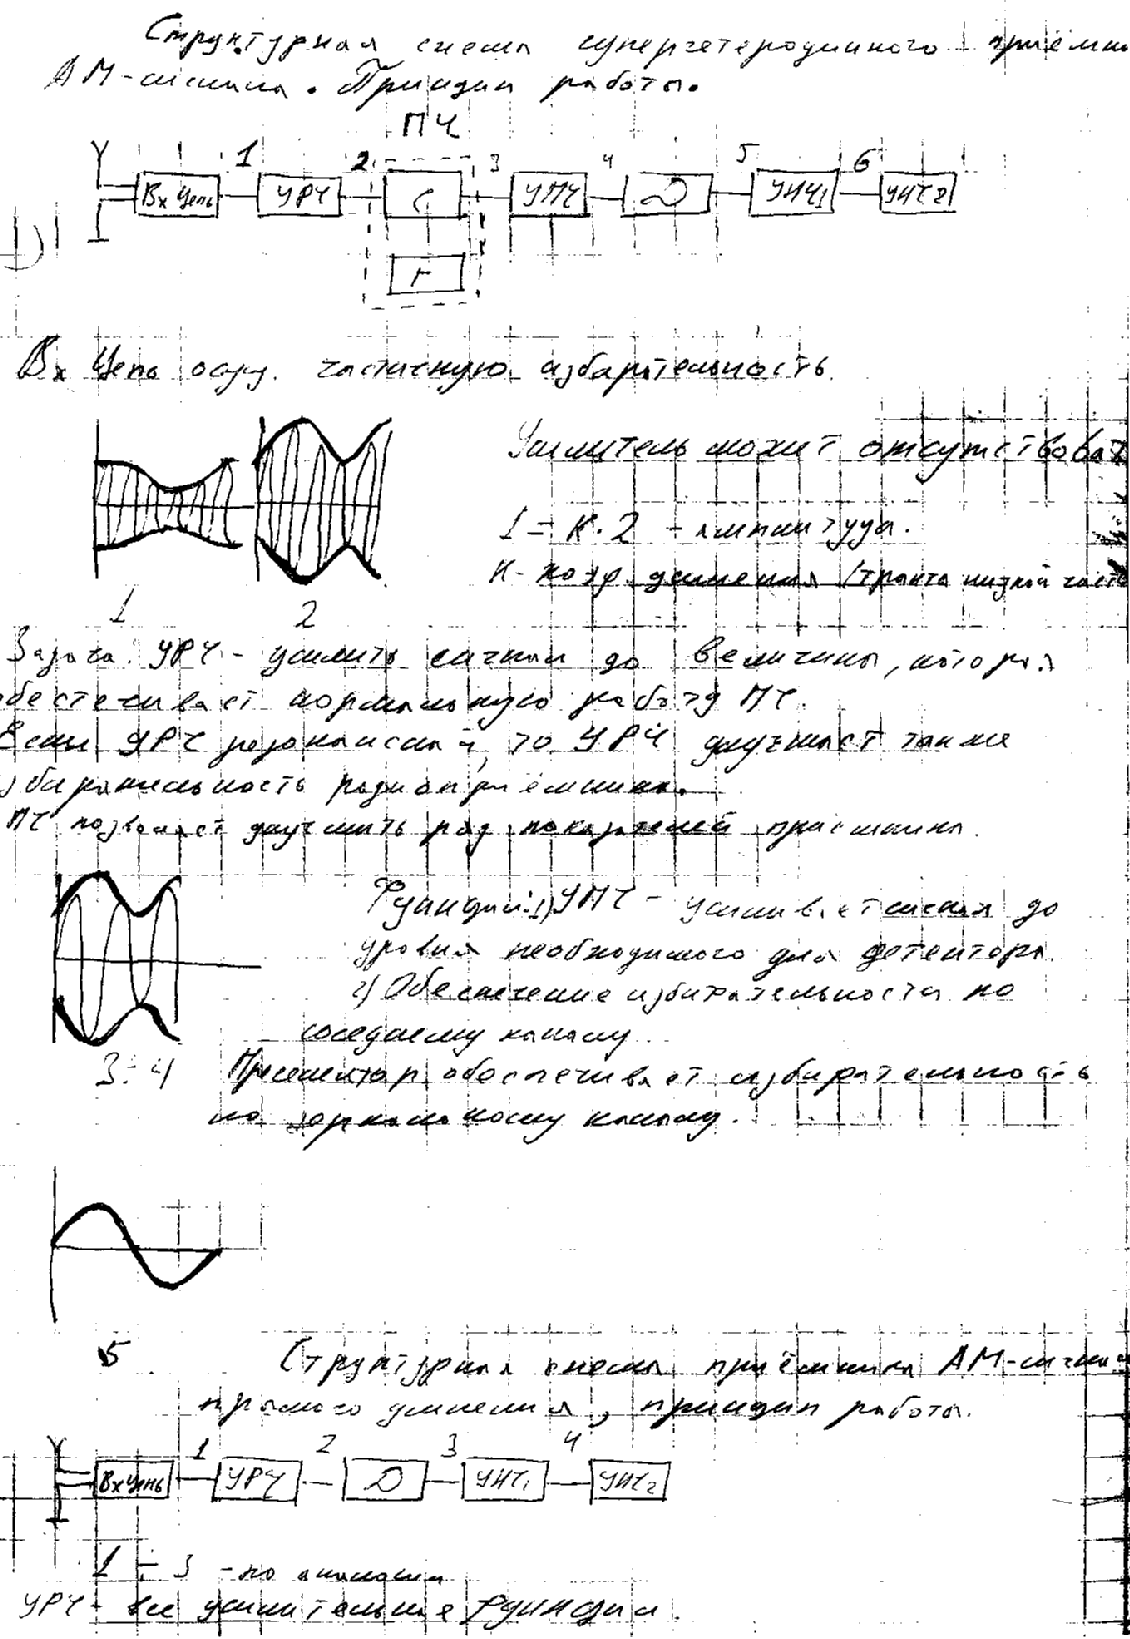 Структурная схема супергетеродинного приёмни
АМ-сигнала. Принцип работы.
ПЧ
1 2 3 4 5 6
Вх Цепь УРЧ С УПЧ Д УНЧ1 УНЧ2
Г
Вх Цепь осущ. частичную избирательность.
Усилитель может отсутствовать
1 = К·2 - амплитуда.
К- коэф. усиления (тракта низкой част
1 2
Задача УРЧ - усилить сигнал до величины, которая
обеспечивает нормальную работу ПЧ.
Если УРЧ резонансный, то УРЧ улучшает также
избирательность радиоприёмника.
ПЧ позволяет улучшить ряд показателей приёмника.
Функции: 1) УПЧ - усиливает сигнал до
уровня необходимого для детектора.
2) Обеспечение избирательности по
соседнему каналу.
3÷4 Преселектор обеспечивает избирательность
по зеркальному каналу.
5 Структурная схема приёмника АМ-сигнал
прямого усиления, принцип работы.
1 2 3 4
Вх Цепь УРЧ Д УНЧ1 УНЧ2
1 ÷ 3 - по аналогии
УРЧ - все усилительные функции.